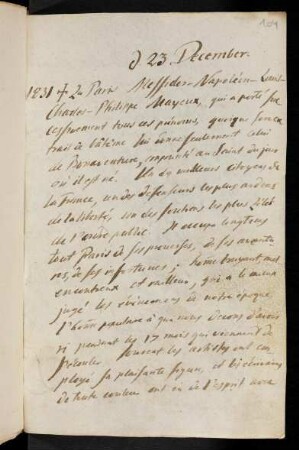 d 23. December.
1831 † Zu Paris Messidor-Napoléon-Louis-
Charles-Philippe Mayeux, qui a porté suc
cessivement tous ces prénoms, quoique
fut donné seulement celui
de Bonaventure, approprié au Saint du jour
où il est né. Un des meilleurs citoyens de
la France, un des défenseurs les plus ardens
de la liberté, un des soutiens les plus zélés
de l'ordre public. Il occupa longtems
tout Paris de ses prouesses, de ses
de ses infortunes; homme bruyant,
et railleur, qui a le mieux
jugé les événemens de notre époque
l'homme populaire à que nous devons d'avoir
ri pendant les 17 mois qui viennent de
s'écouler. Souvent les artistes ont em
ployé sa plaisante figure, et les écrivains
de toute couleur ont eu de l'esprit avec